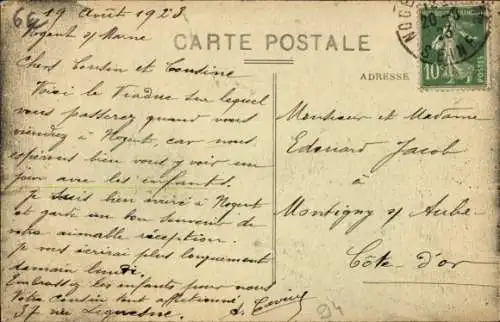 19 Août 1923
Nogent s/ Marne
CARTE POSTALE
Chers Cousin et Cousine
Voici le Viaduc sur lequel
vous passerez quand vous
viendrez à Nogent, car nous
espérons bien vous y voir un
jour avec les enfants.
Je suis bien arrivé à Nogent
et garde un bon souvenir de
votre aimable réception.
Je vous écrirai plus longuement
demain lundi.
Embrassez les enfants pour nous
Votre cousin tout affectionné
37 rue
ADRESSE
Monsieur et Madame
Edouard Jacob
à
Montigny s/ Aube
Côte-d'or
10
POSTES
94